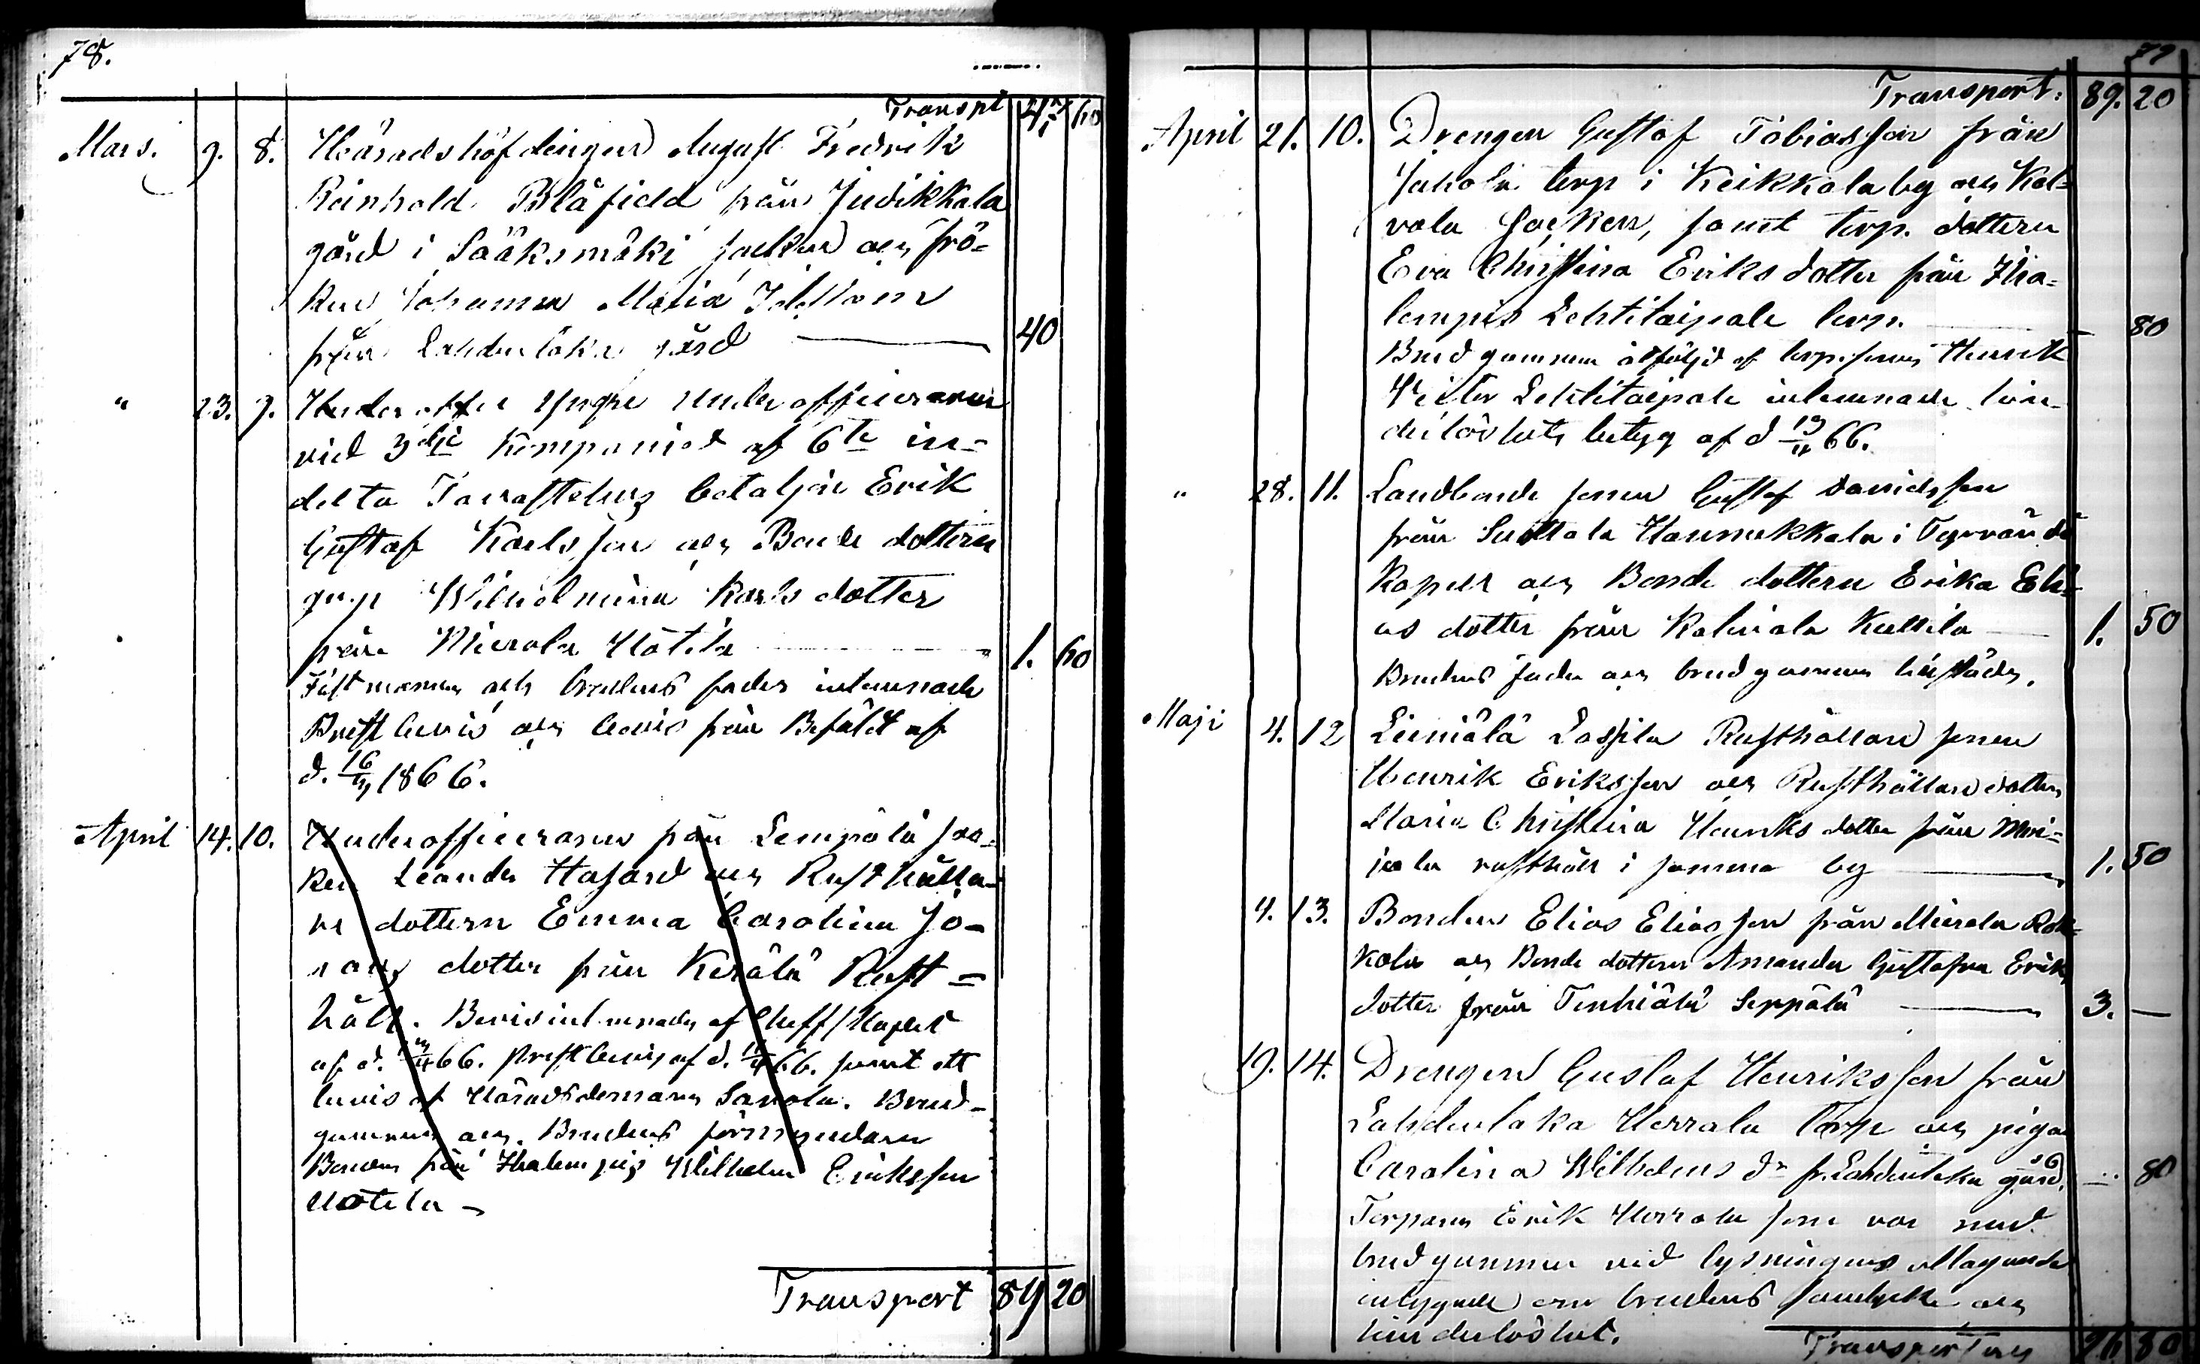 78.
Transpt 47 60
Mars. 9. 8. Häradshöfdingen August Fredrik
Reinhold Blåfield från Judikkala
gård i Sääksmäki socken och frö-
ken Johanna Maria
från Lahdentaka gård 40
" 23. 9. Yngre underofficeraren
vid 3dje Kompaniet af 6te in-
delta Tavastehus bataljon Erik
Gustaf Karlsson och Bonde dottern
Wilhelmina Karls dotter
från Mierola Uotila 1. 60
Fästmannen och brudens fader inlemnade
Prestbevis och bevis från Befälet af
d. 16 1866.
April 14. 10. Underofficeraren från Lempälä soc-
ken Leander Hasard och Rusthålla-
re dottern Emma Carolina Jo-
nas dotter från Kerälä Rust-
håll. Bevis inlemnades af Cheff
af d. 66. Prestbevis af d. 66. samt ett
bevis af Häradsdomaren Savola. Brud-
gummen och Brudens förmyndare
Bonden från Ihalempis Wilhelm Eriksson
Uotila –
Transport 89 20
79
Transport: 89. 20
April 21. 10. Drengen Gustaf Tobiasson från
Jakola torp i Keikkala by och Kal-
vola Socken, samt torp. dottern
Eva Christina Eriks dotter från Iha-
lempis Lehtitaipale torp. 80
Brudgummen åtföljd af torp. sonen Henrik
Lehtitaipale inlemnade hin-
derlöshets betyg af d 19 66.
" 28. 11. Landbonde sonen Gustaf Davidsson
från Suttala Hannukkala i Tyrvändö
Kapell och Bonde dottern Erika Eli-
as dotter från Kalviala Kullila 1. 50
Brudens fader och brudgummen tillstädes.
Maji 4. 12 Leiniälä Lassila Rusthållare sonen
Henrik Eriksson och Rusthållare dottern
Maria Christina Henriks dotter från Meri-
jala rusthåll i samma by 1. 50
4. 13. Bonden Elias Eliasson från Mierola Rok-
kola och Bonde dottern Amanda Gustafva Eriks
dotter från Tenhiälä Seppälä 3. –
19. 14. Drengen Gustaf Henriksson från
Lahdentaka Herrala torp och pigan
Carolina Wilhelms dr fr. Lahdentaka gård. – 80
Torparen Erik Herrala som var med
brudgummen vid lysningens uttagande
intygade om brudens samtycke och
hinderlöshet.
96 80